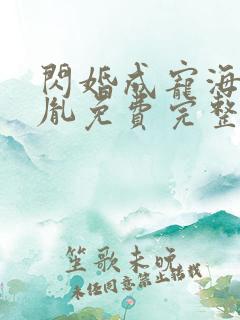 閃婚成寵海
胤免費完整
笙歌未晚
未經同意禁止轉載